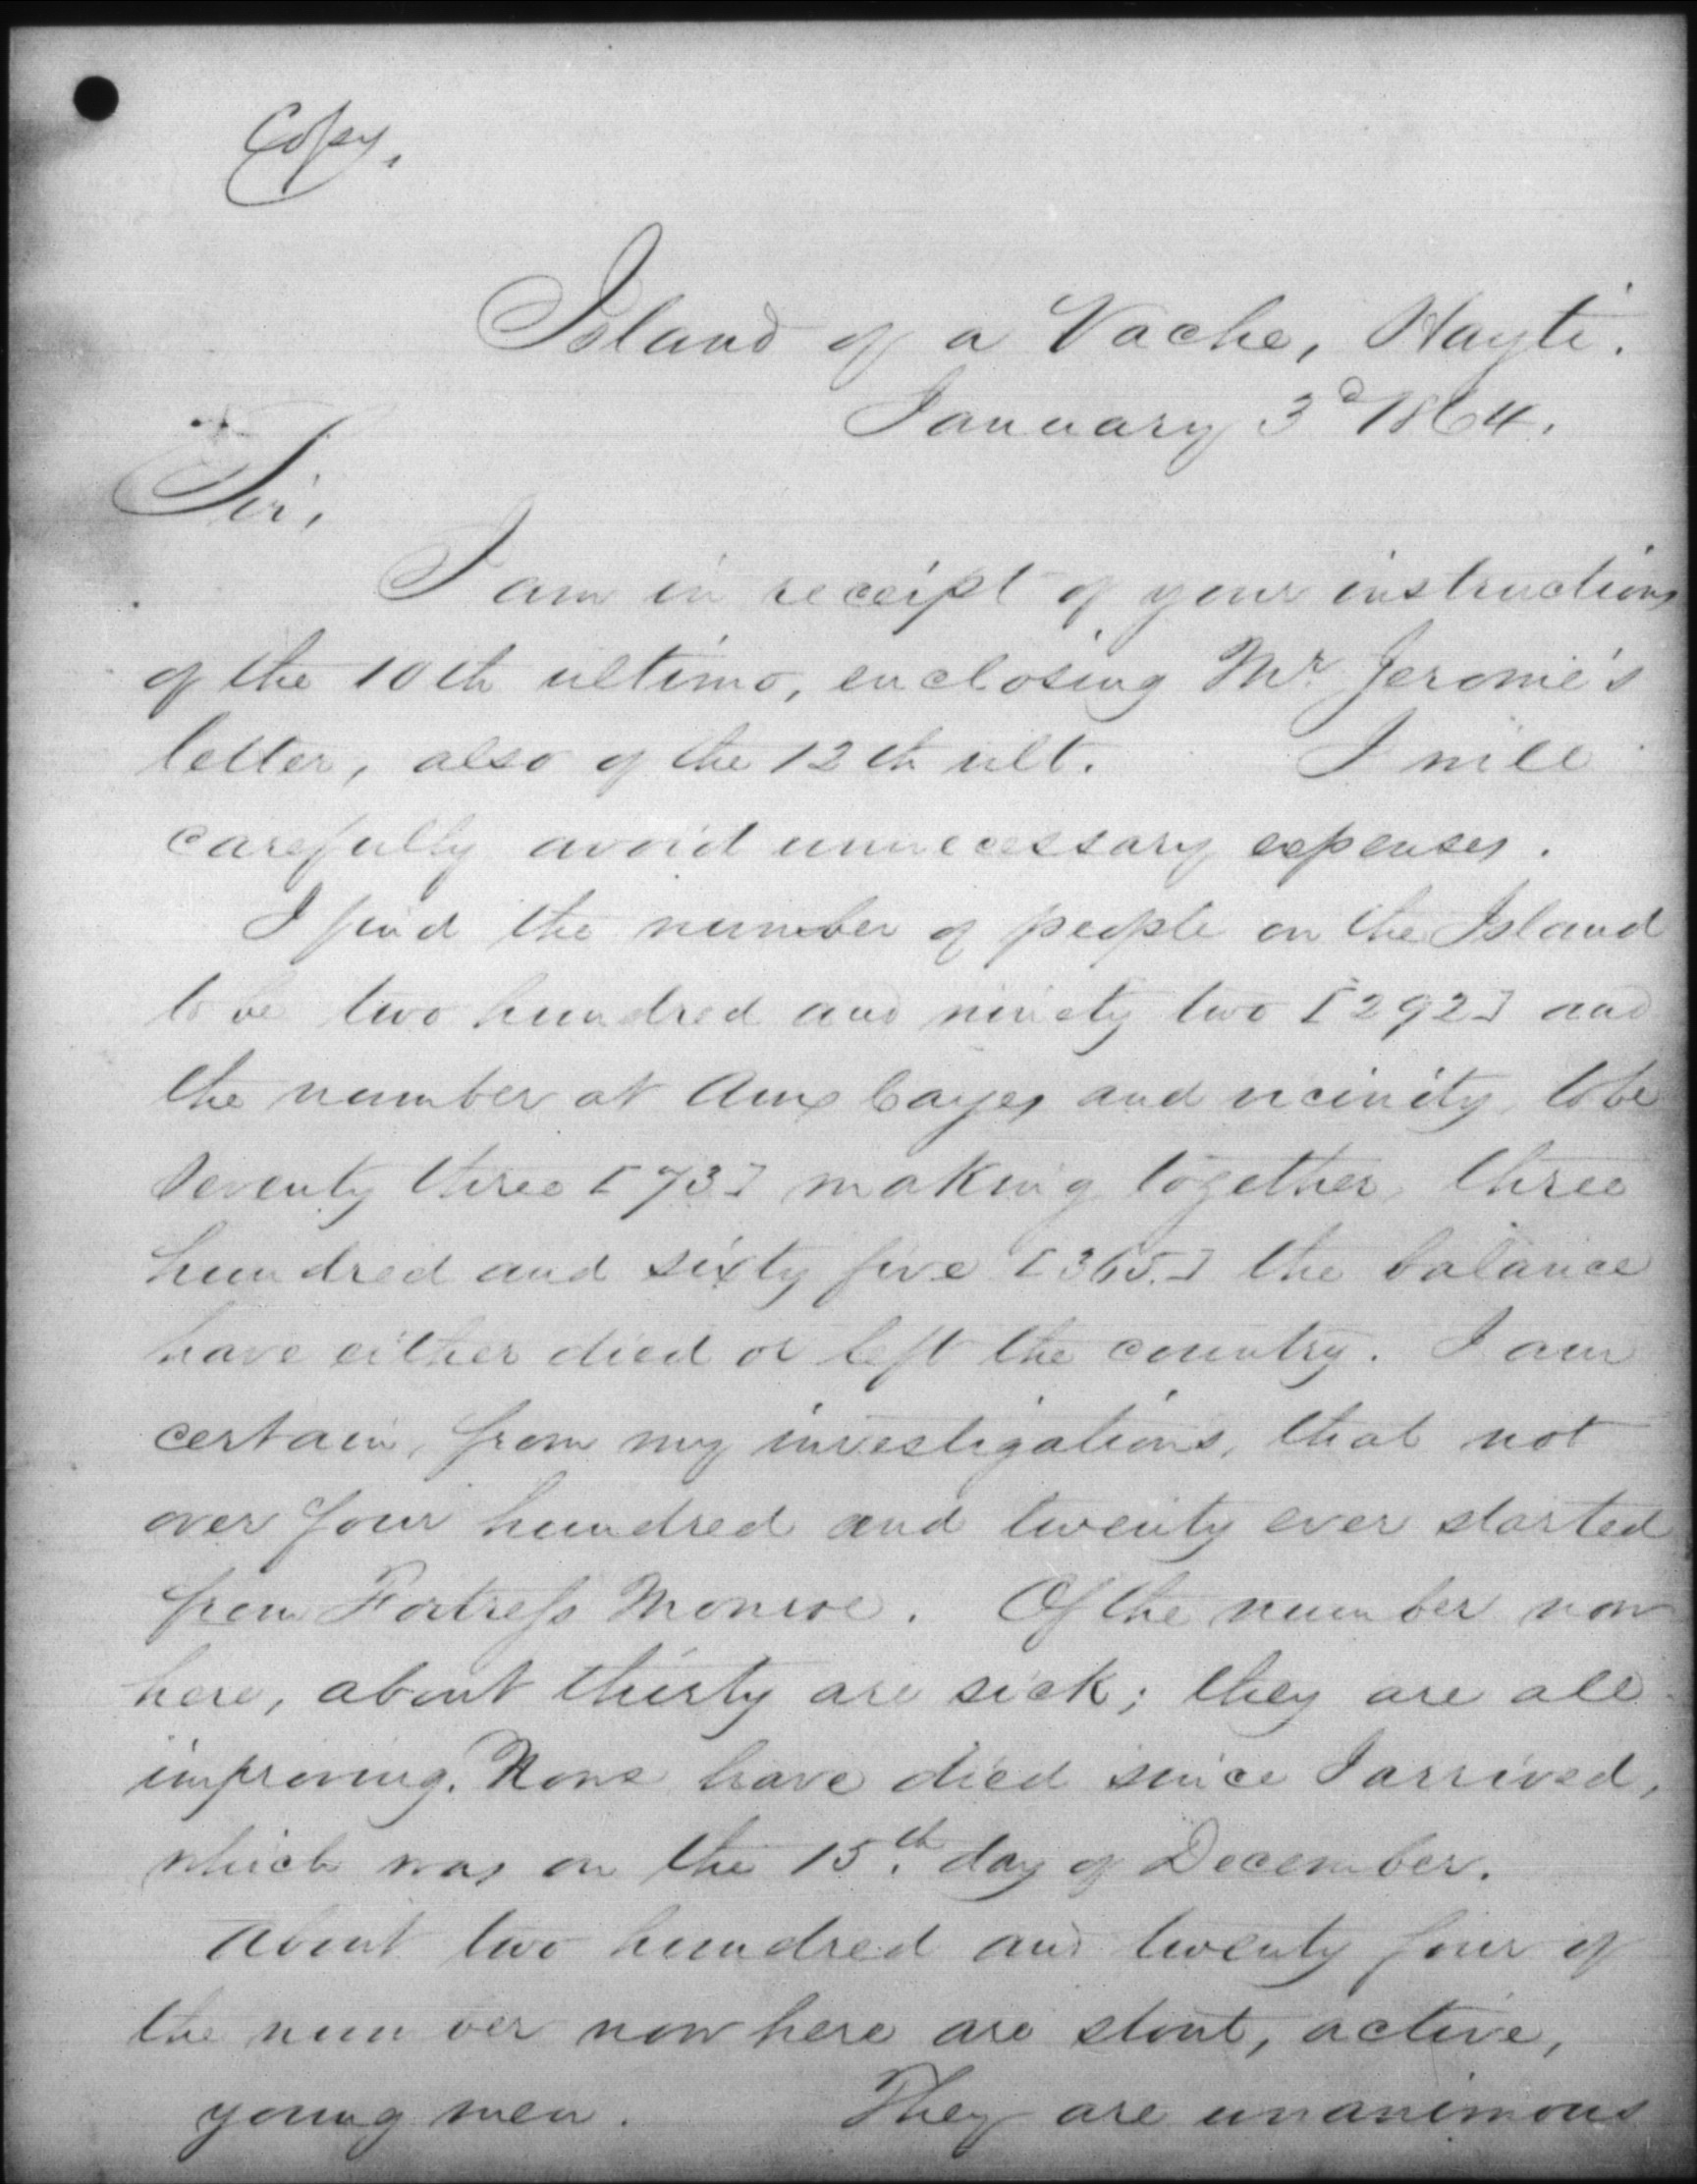 Copy.
Island of a Vache, Hayti.
January 3d 1864.
Sir,
I am in receipt of your instructions
of the 10th ultimo, enclosing Mr Jerome's
letter, also of the 12th ult. I will
carefully avoid unnecessary expenses.
I find the number of people on the Island
to be two hundred and ninety two [292] and
the number at Aux Cayes and vicinity, to be
seventy three [73] making together, three
hundred and sixty five [365.] the balance
have either died or left the country. I am
certain, from my investigations, that not
over four hundred and twenty ever started
from Fortress Monroe. Of the number now
here, about thirty are sick; they are all
improving. None have died since I arrived,
which was on the 15th day of December.
About two hundred and twenty four of
the number now here are stout, active,
young men. They are unanimous